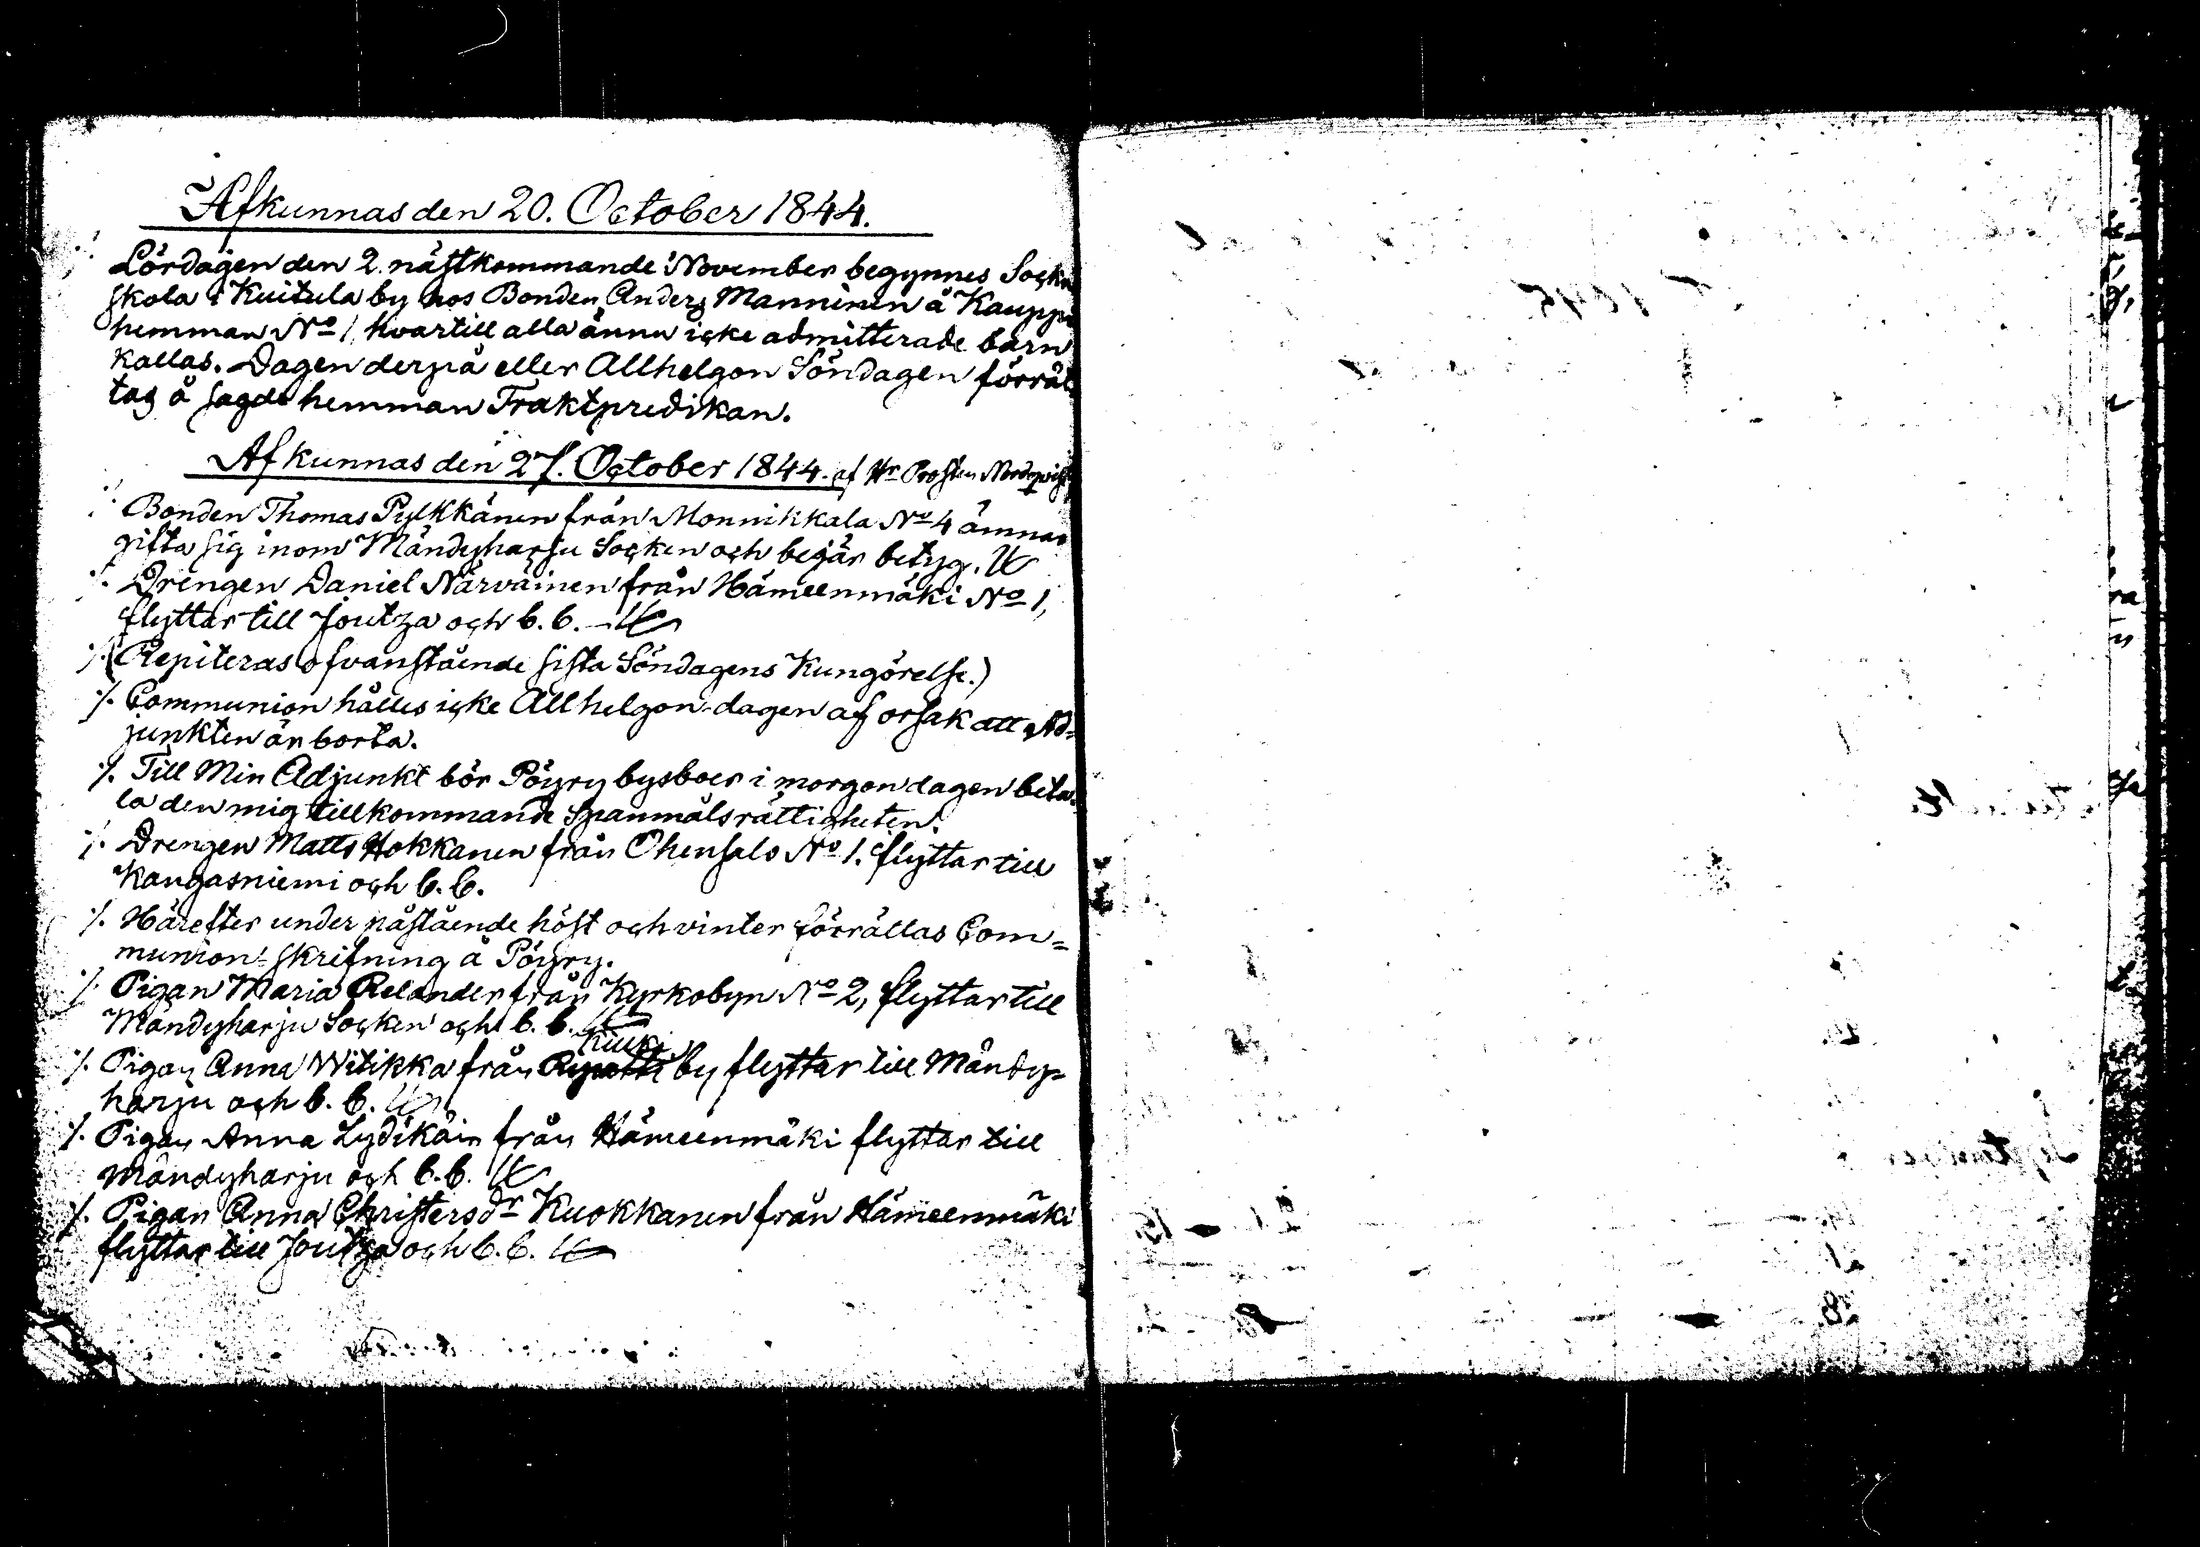 Afkunnas den 20. October 1844.
·/. Lördagen den 2. nästkommande November begynnes Sockn
skola i Kuitula by hos Bonden Anders Manninen å Kauppi
hemman No 1, hvartill alla ännu icke admitterade barn
kallas. Dagen derpå eller Allhelgon Söndagen förrät
tas å sagde hemman Traktpredikan.
Afkunnas den 27. October 1844. af Hr Prosten Nordqvist
·/. Bonden Thomas Pylkkänen från Monnikkala No 4 ämnar
gifta sig inom Mändyharju Socken och begär betyg.
·/. Drengen Daniel Närväinen från Hämeenmäki No 1,
flyttar till Joutza och b. b. —
·/. (Repiteras ofvanstående sista Söndagens Kungörelse.)
·/. Communion hålles icke Allhelgon-dagen af orsak att Ad=
junkten är borta.
·/. Till Min Adjunkt bör Pöyry bysboer i morgon dagen beta=
la den mig tillkommande Spanmålsrättigheten.
·/. Drengen Matts Hokkanen från Ohensalo No 1. flyttar till
Kangasniemi och b. b.
·/. Härefter under påstående höst och vinter förrättas Com=
munion-skrifning å Pöyry.
·/. Pigan Maria Relander från Kyrkobyn No 2, flyttar till
Mändyharju Socken och b. b.
·/. Pigan Anna Witikka från by flyttar till Mändy=
harju och b. b.
·/. Pigan Anna Lydikäin från Hämeenmäki flyttar till
Mändyharju och b. b.
·/. Pigan Anna Christersdr Kuokkanen från Hämeenmäki
flyttar till Joutza och b. b.